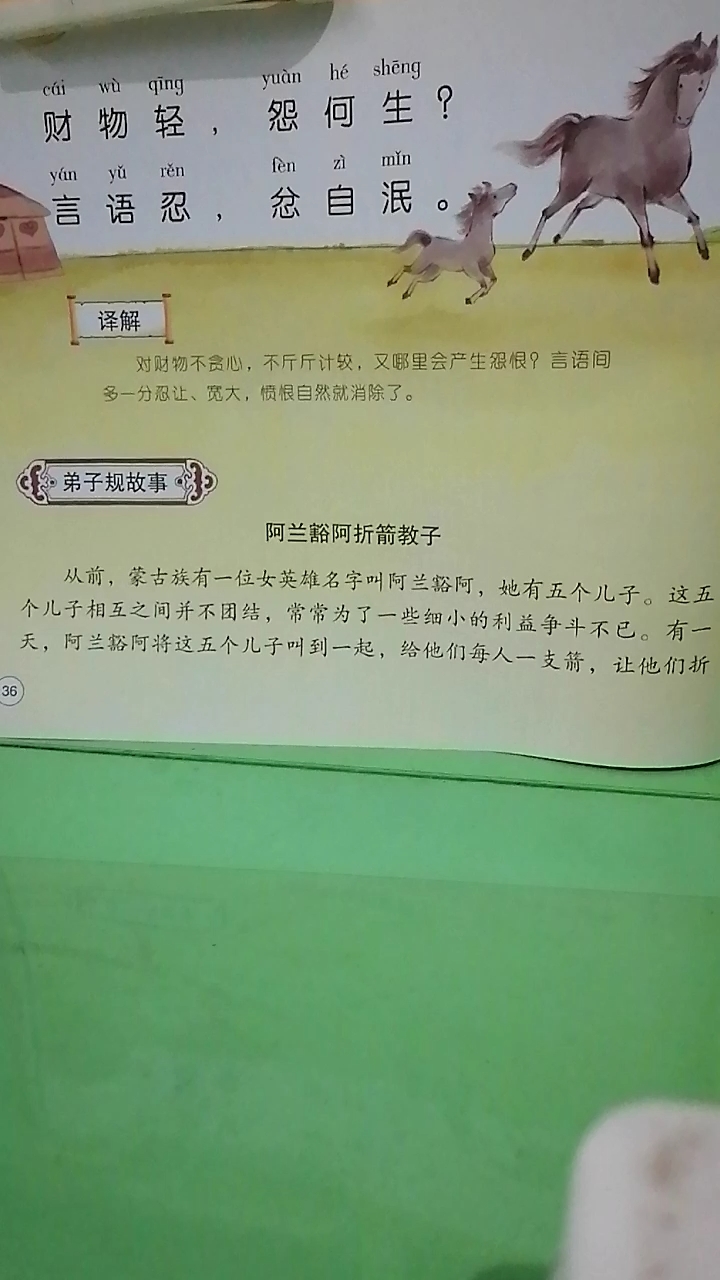 cái wù qīng yuàn hé shēng
财物轻，怨何生？
yán yǔ rěn fèn zì mǐn
言语忍，忿自泯。
译解
对财物不贪心，不斤斤计较，又哪里会产生怨恨？言语间
多一分忍让、宽大，愤恨自然就消除了。
弟子规故事
阿兰豁阿折箭教子
从前，蒙古族有一位女英雄名字叫阿兰豁阿，她有五个儿子。这五
个儿子相互之间并不团结，常常为了一些细小的利益争斗不已。有一
天，阿兰豁阿将这五个儿子叫到一起，给他们每人一支箭，让他们折
36